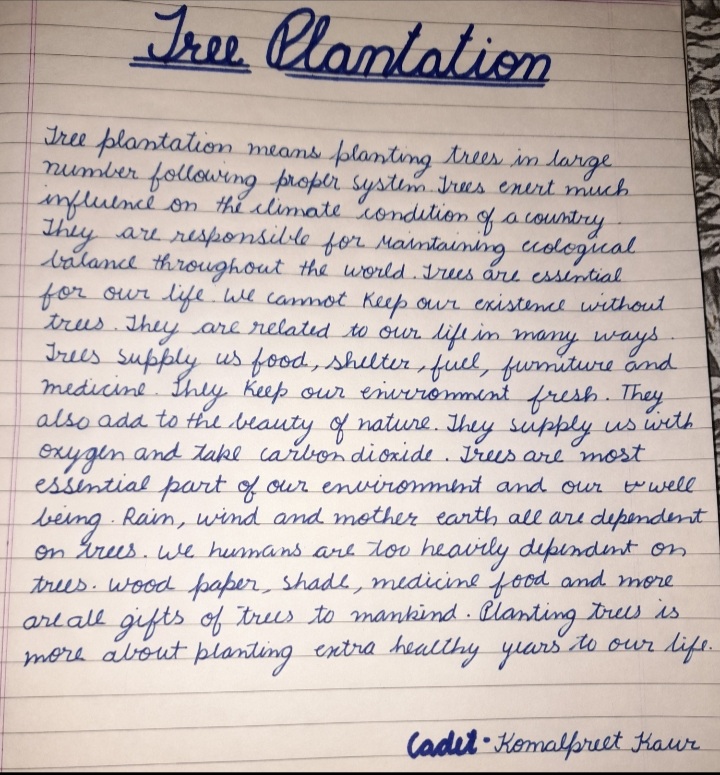 Tree Plantation
Tree plantation means planting trees in large
number following proper system. Trees exert much
influence on the climate condition of a country.
They are responsible for maintaining ecological
balance throughout the world. Trees are essential
for our life. We cannot keep our existence without
trees. They are related to our life in many ways.
Trees supply us food, shelter, fuel, furniture and
medicine. They keep our environment fresh. They
also add to the beauty of nature. They supply us with
oxygen and take carbon dioxide. Trees are most
essential part of our environment and our well
being. Rain, wind and mother earth all are dependent
on trees. We humans are too heavily dependent on
trees. Wood paper, shade, medicine food and more
are all gifts of trees to mankind. Planting trees is
more about planting extra healthy years to our life.
Cadet - Komalpreet Kaur